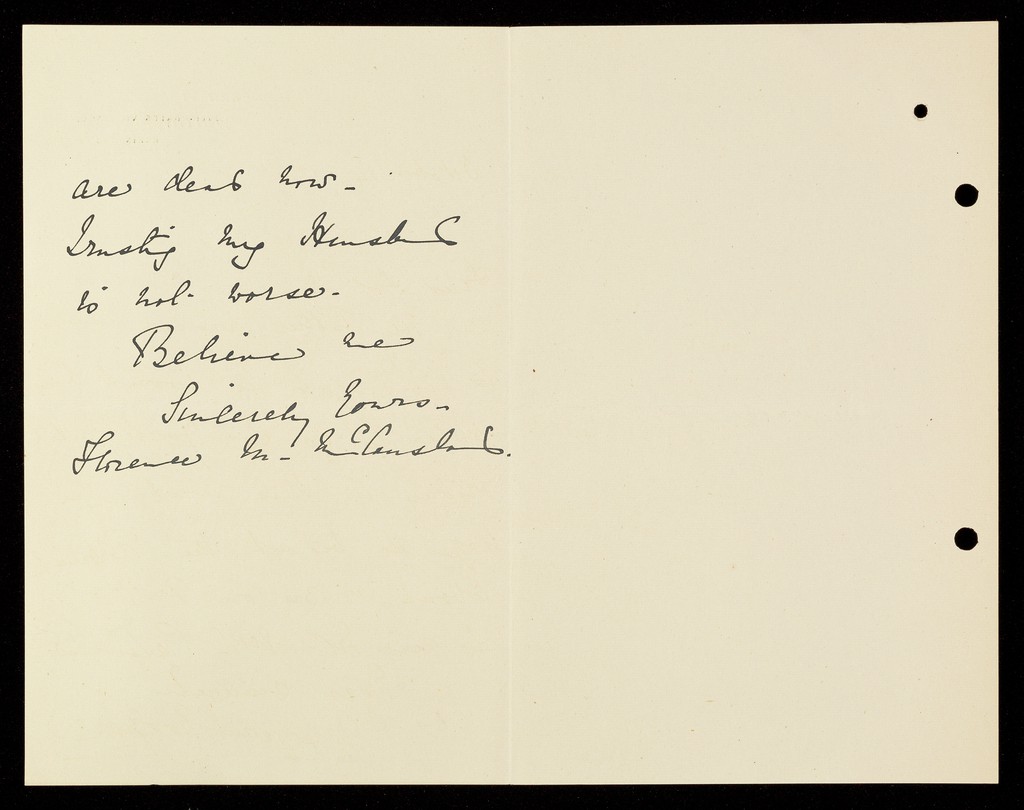 are dead now -
Trusting my Husband
is not worse -
Believe me
Sincerely Yours -
Florence M - McCausland.